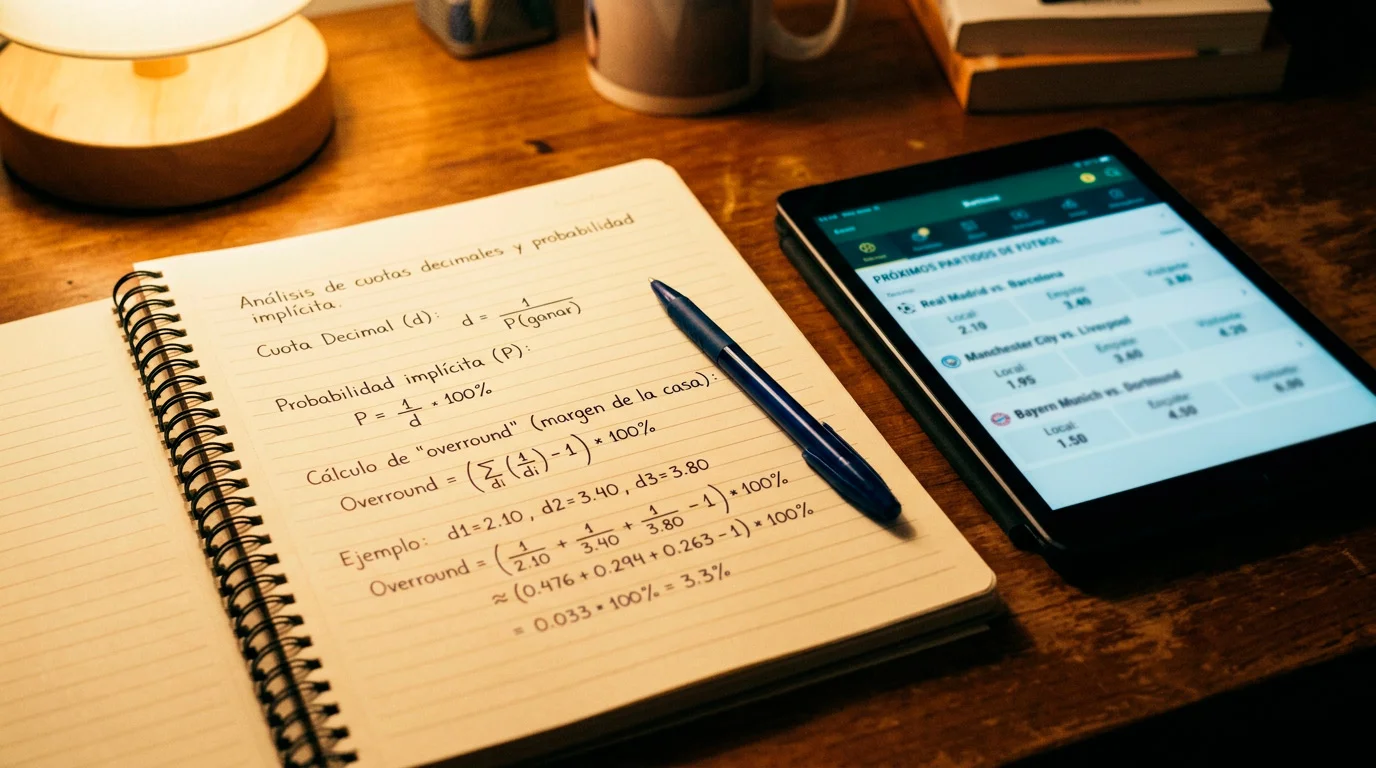 Análisis de cuotas decimales y probabilidad
implícita.
Cuota Decimal (d): d = 1 / P(ganar)
Probabilidad implícita (P):
P = 1/d * 100%
Cálculo de "overround" (margen de la casa):
Overround = (∑di (1/di) - 1) * 100%
Ejemplo: d1=2.10, d2=3.40, d3=3.80
Overround = (1/2.10 + 1/3.40 + 1/3.80 - 1) * 100%
≈ (0.476 + 0.294 + 0.263 - 1) * 100%
= 0.033 * 100% = 3.3%
PRÓXIMOS PARTIDOS DE FUTBOL
Real Madrid vs. Barcelona
Local Empate Visitante
2.10 3.40 3.80
Manchester City vs. Liverpool
Local Empate Visitante
1.95 3.60 4.20
Bayern Munich vs. Dortmund
Local Empate Visitante
1.50 4.50